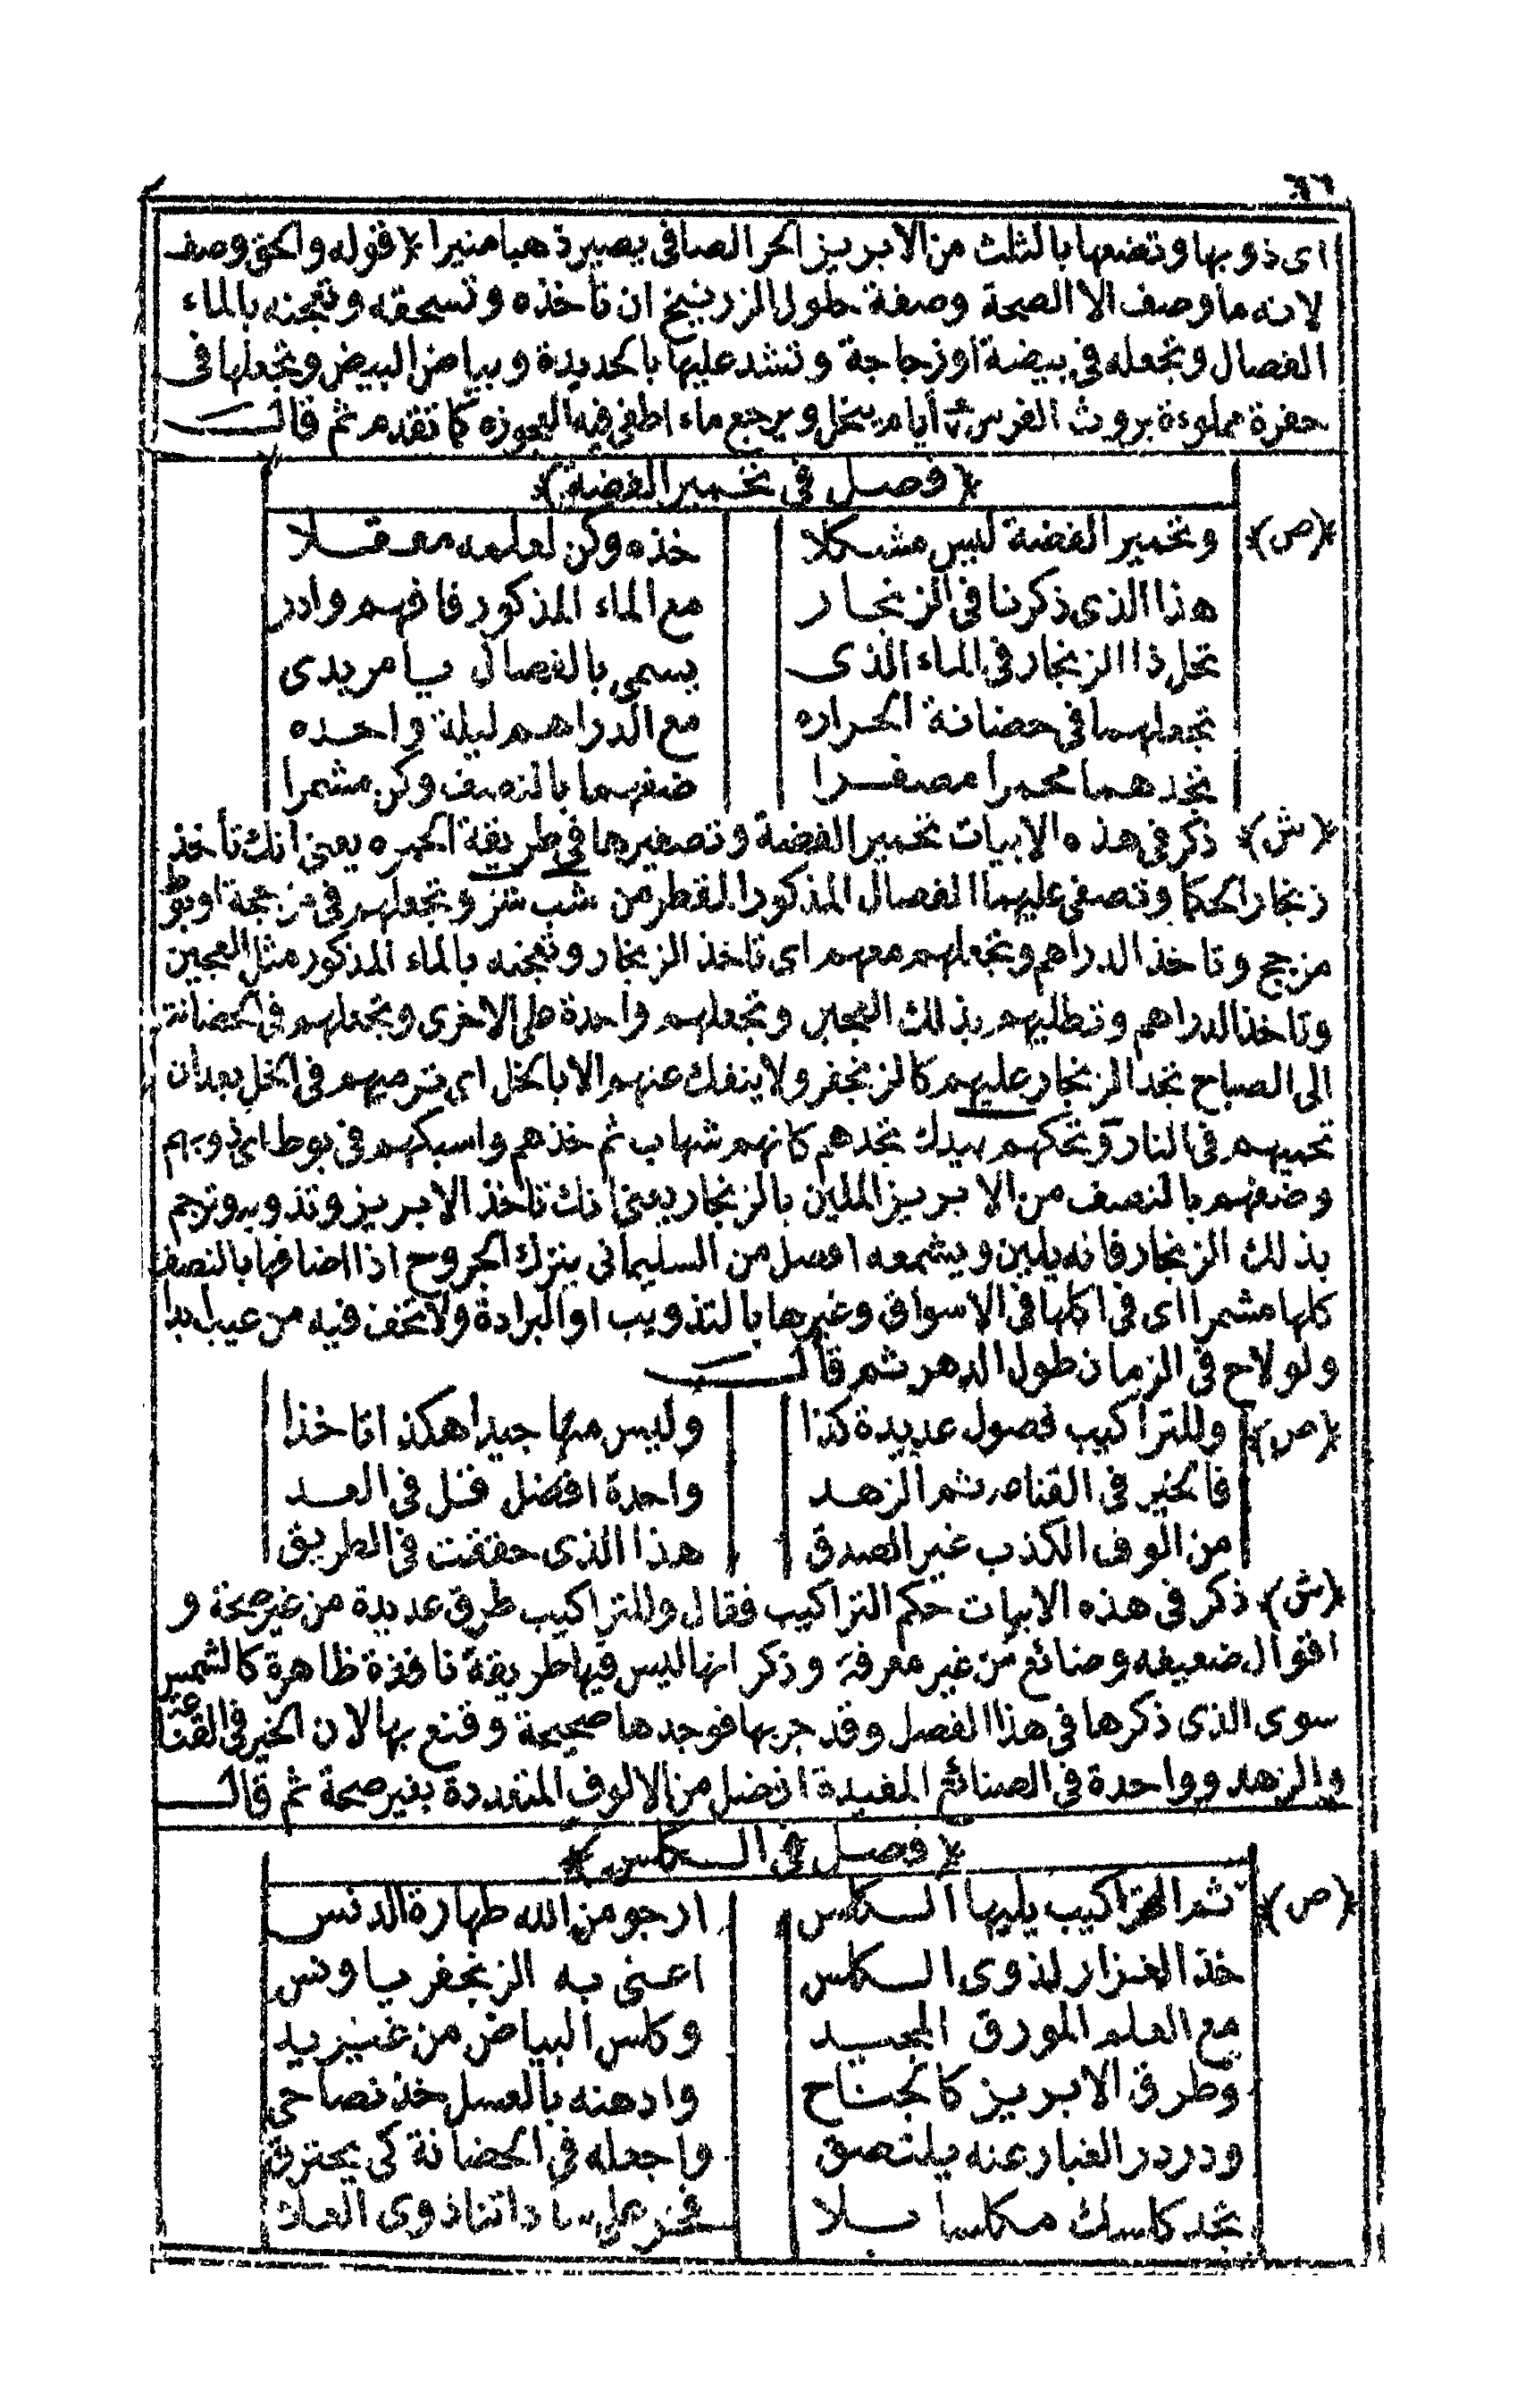 ٦٦
اى ذوبها وتضعها بالثلث من الابريز الحر الصافى يصيرة هبا منيرا ﴿قوله والحق وصف
لانه ما وصف الا الصحة وصفة حلول الزرنيخ ان تأخذه وتسحقه وتعجنه بالماء
الفصال وتجعله فى بيضة اوزجاجة وتشد عليها بالحديدة وبياض البيض وتجعلها فى
حفرة مملوءة بروث الفرس أيام ينحل ويرجع ماء اطفى فيه العجوزه كما تقدم ثم قال
﴿فصل فى تحمير الفضة﴾
﴿ص﴾ وتحمير الفضة ليس مشكلا خذه وكن لعلمه معقلا
هذا الذى ذكرنا فى الزنجار مع الماء المذكور فافهم وادر
تحل ذا الزنجار فى الماء الذى يسمى بالفصال يا مريدى
تجعلهما فى حضانة الحراره مع الدراهم ليلة واحده
تجدهما محمرا مصفرا ضفهما بالنصف وكن مشمرا
﴿ش﴾ ذكر فى هذه الابيات تحمير الفضة وتصفيرها فى طريقة الحمره يعنى انك تأخذ
زنجار الحكما وتصفى عليهما الفصال المذكور المقطر من شب شنز وتجعلهم فى مزججة او بوط
مزجج وتاخذ الدراهم وتجعلهم معهم اى تاخذ الزنجار وتعجنه بالماء المذكور مثل العجين
وتاخذ الدراهم وتطليهم بذلك العجين وتجعلهم واحدة على الاخرى وتجعلهم فى الحضانة
الى الصباح تجد الزنجار عليهم كالزنجفر ولا ينفك عنهم الا بالخل اى ترميهم فى الخل بعد أن
تحميهم فى النار وتحكهم بيدك تجدهم كانهم شهاب ثم خذهم واسبكهم فى بوط اى ذوبهم
وضفهم بالنصف من الابريز الملين بالزنجار يعنى انك تاخذ الابريز وتذوبه وترجم
بذلك الزنجار فانه يلين ويشمعه افضل من السليمانى ينزك الجروح اذا اضافها بالنصف
كلها مشمرا اى فى اكلها فى الاسواق وغيرها بالتذويب او البرادة ولا تخف فيه من عيب ابدا
ولو لاح فى الزمان طول الدهر ثم قال
﴿ص﴾ وللتراكيب فصول عديدة كذا وليس منها جيدا هكذا تاخذا
فالخير فى القناعه ثم الزهد واحدة افضل قل فى العد
من الوف الكذب غير الصدق هذا الذى حققت فى الطريق
﴿ش﴾ ذكر فى هذه الابيات حكم التراكيب فقال وللتراكيب طرق عديدة من غير صحة و
اقوال ضعيفه وصنائع من غير معرفة وذكر انها ليس فيها طريقة نافذة ظاهرة كالشمس
سوى الذى ذكرها فى هذا الفصل وقد جربها فوجدها صحيحة وقنع بها لان الخير فى القناعة
والزهد وواحدة فى الصنائع المفيدة افضل من الالوف المتعددة بغير صحة ثم قال
﴿فصل فى الكلس﴾
﴿ص﴾ ثم التراكيب يليها الكلس ارجو من الله طهارة الدنس
خذ الغزار لذوى الكلس اعنى به الزنجفر يا ونس
مع العلم المورق المجيد وكلس البياض من غير يد
وطرق الابريز كالجناح وادهنه بالعسل خذ نصاحى
ودردر الغبار عنه يلتصق واجعله فى الحضانة كى يحترق
تجد كاسك مكلسا بلا ساداتنا ذوى العلا